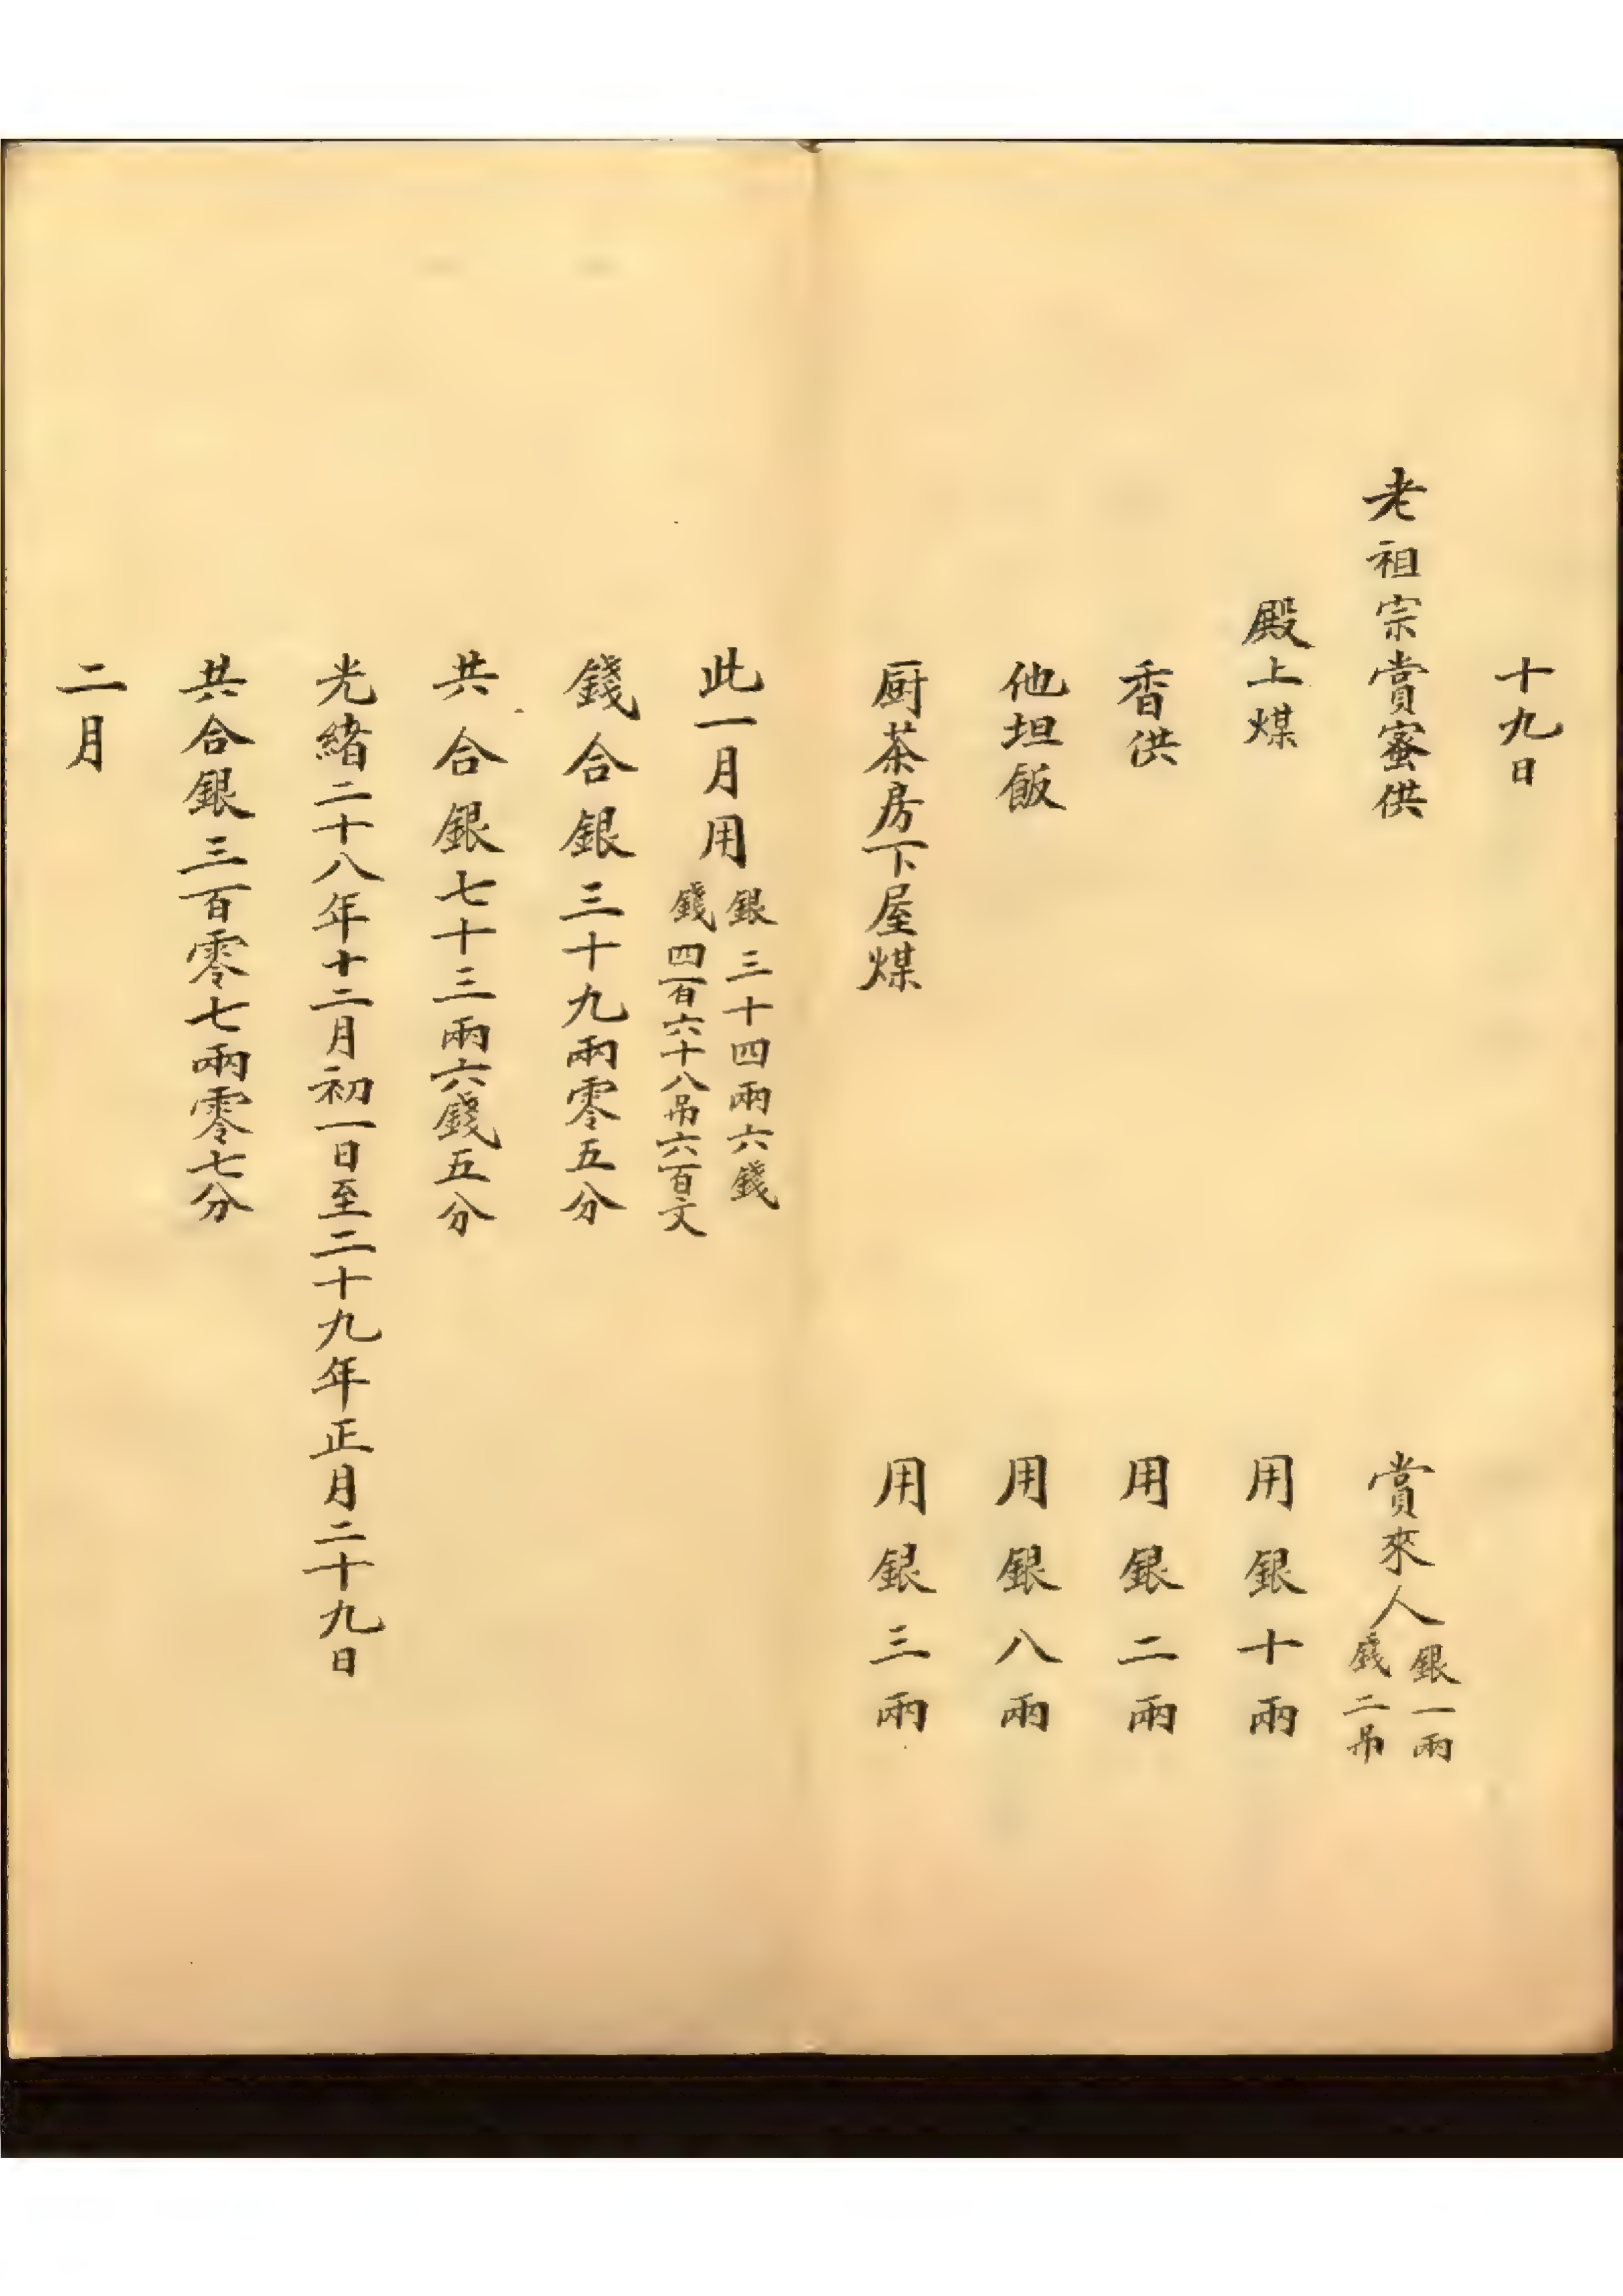 十九日
老祖宗賞蜜供
賞來人銀一兩
錢二吊
殿上煤
用銀十兩
香供
用銀二兩
他坦飯
用銀八兩
厨茶房下屋煤
用銀三兩
此一月用銀三十四兩六錢
錢四百六十八吊六百文
錢合銀三十九兩零五分
共合銀七十三兩六錢五分
光緒二十八年十二月初一日至二十九年正月二十九日
共合銀三百零七兩零七分
二月